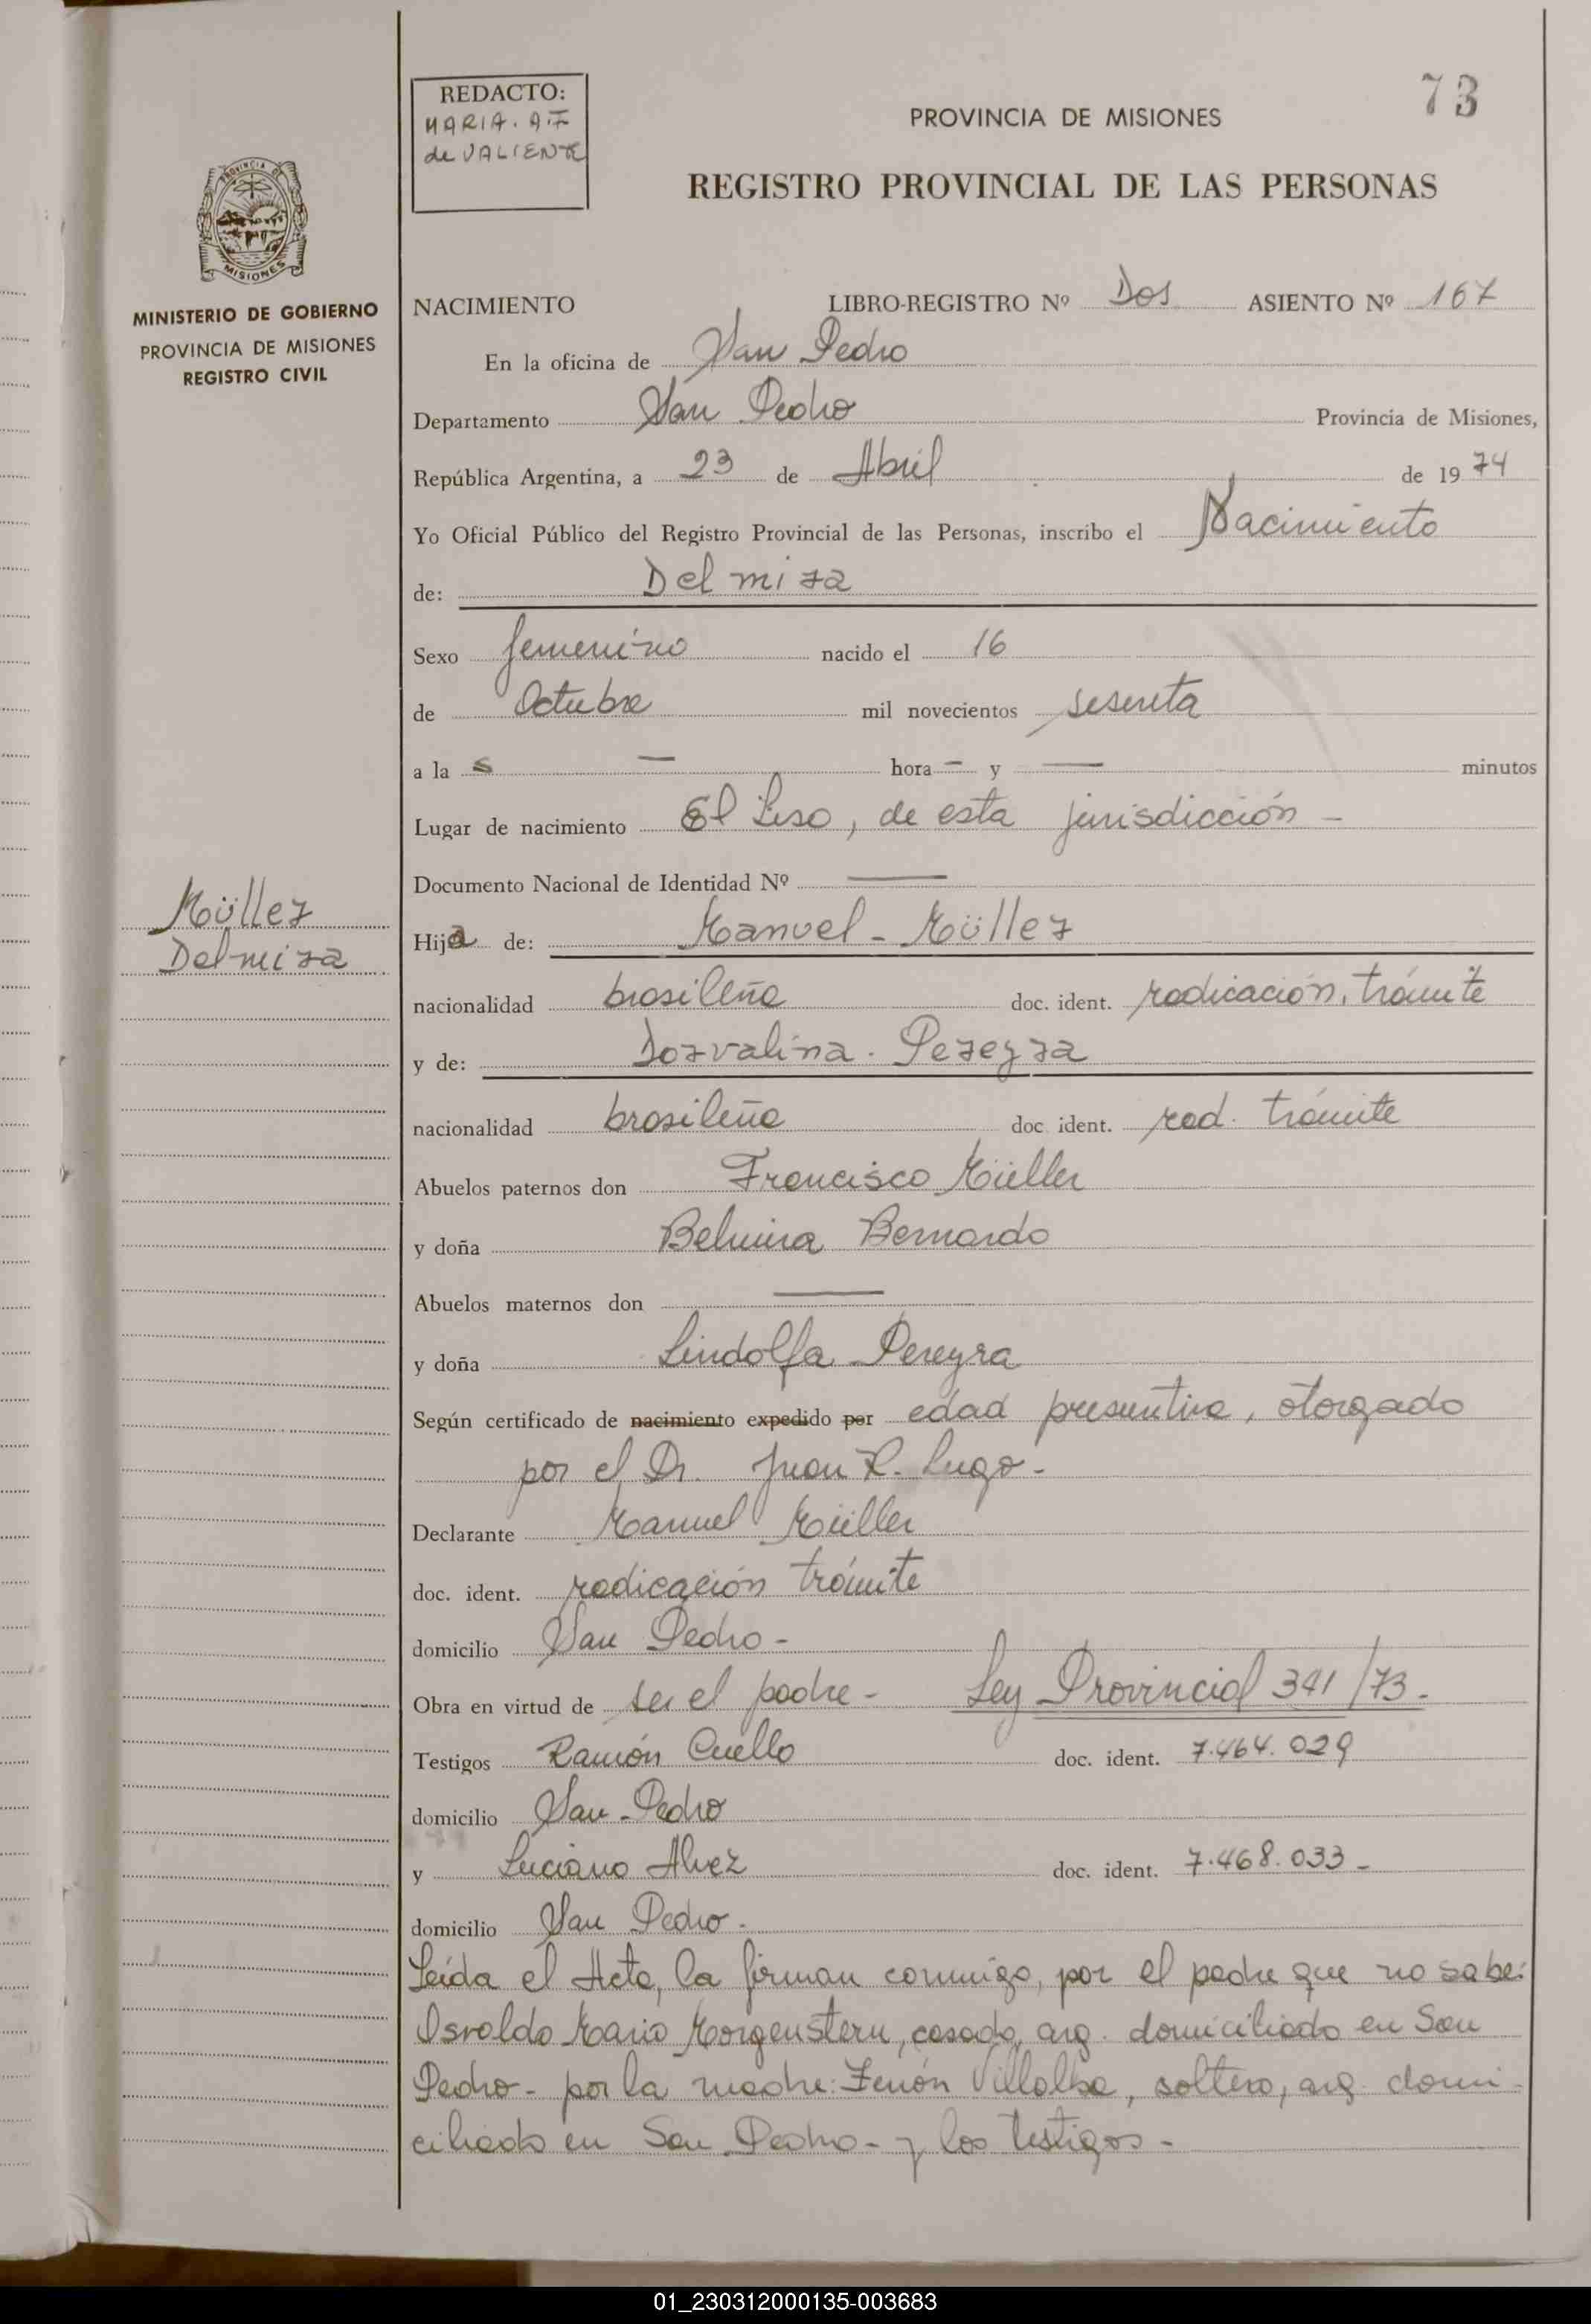 73
REDACTO:
MARIA. A.F
de VALIENTE
PROVINCIA DE MISIONES
REGISTRO PROVINCIAL DE LAS PERSONAS
PROVINCIA DE
MISIONES
MINISTERIO DE GOBIERNO
PROVINCIA DE MISIONES
REGISTRO CIVIL
NACIMIENTO LIBRO-REGISTRO Nº Dos ASIENTO Nº 167
En la oficina de San Pedro
Departamento San Pedro Provincia de Misiones,
República Argentina, a 23 de Abril de 1974
Yo Oficial Público del Registro Provincial de las Personas, inscribo el Nacimiento
de: Delmira
Sexo femenino nacido el 16
de Octubre mil novecientos sesenta
a la s — hora — y — minutos
Lugar de nacimiento El Liso, de esta jurisdicción -
Documento Nacional de Identidad Nº —
Müller
Delmira
Hija de: Manuel - Müller
nacionalidad brasileña doc. ident. radicación, trámite
y de: Dorvalina. Pereyra
nacionalidad brasileña doc. ident. rad. trámite
Abuelos paternos don Francisco Müller
y doña Belmira Bernardo
Abuelos maternos don —
y doña Lindolfa Pereyra
Según certificado de nacimiento expedido por edad presuntiva, otorgado
por el Dr. Juan R. Lugo-
Declarante Manuel Müller
doc. ident. radicación trámite
domicilio San Pedro -
Obra en virtud de ser el padre - Ley Provincial 341/73.
Testigos Ramón Cuello doc. ident. 7.464.029
domicilio San Pedro
y Luciano Alvez doc. ident. 7.468.033 -
domicilio San Pedro.
Leída el Acta, la firman conmigo, por el padre que no sabe:
Osvaldo Mario Morgenstern, casado, arg. domiciliado en San
Pedro - por la madre: Zenón Villalba, soltero, arg. domi-
ciliado en San Pedro - y los testigos -
01_230312000135-003683